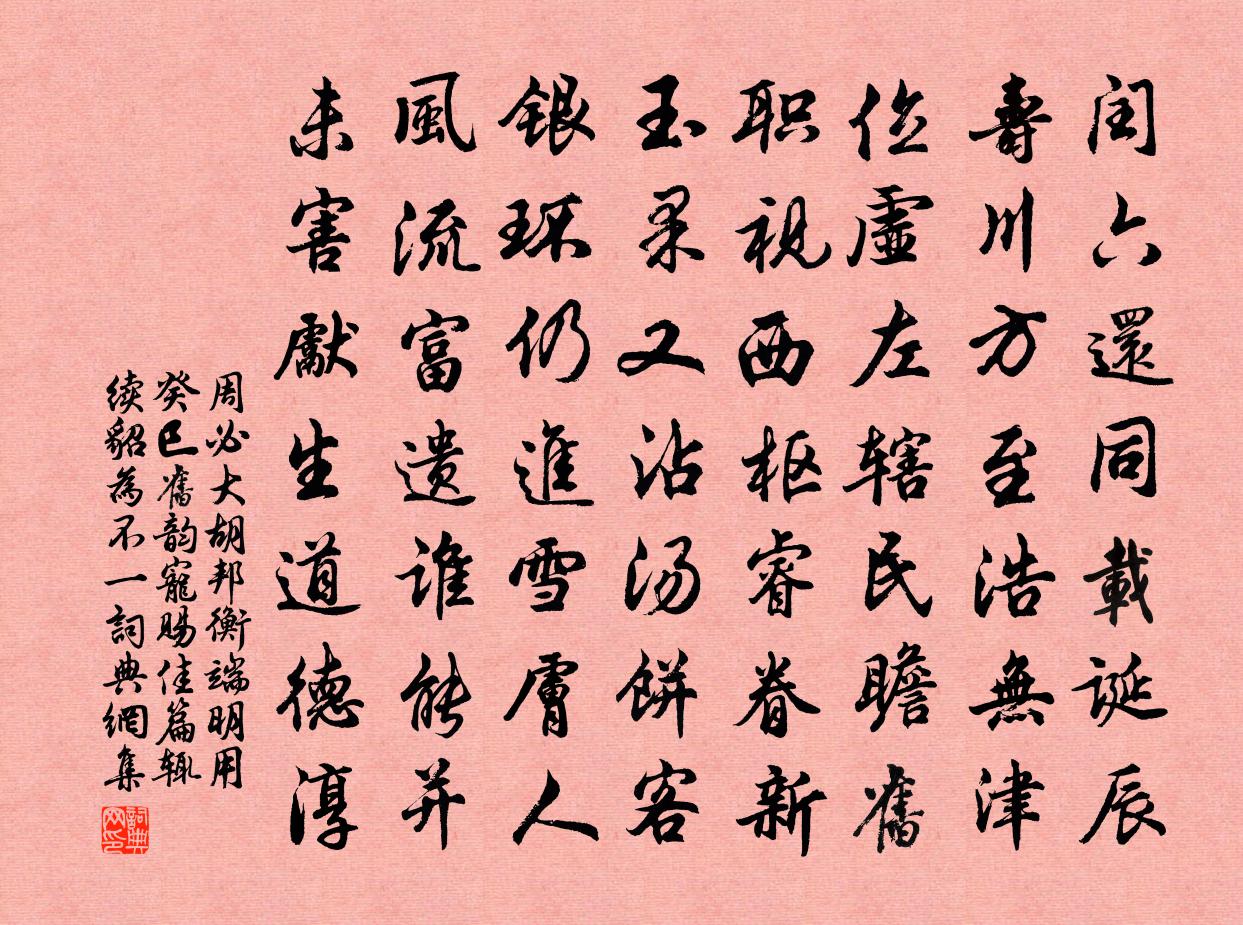 闰六還同載誕辰
壽川方至浩無津
位虚左辖民瞻舊
职視西枢睿眷新
玉果又沾汤餅客
銀环仍進雪膚人
風流富遗谁能并
未害獻生道德淳
周必大胡邦衡端明用
癸巳舊韵寵賜佳篇辄
续貂為不一詞典網集
詞典网印